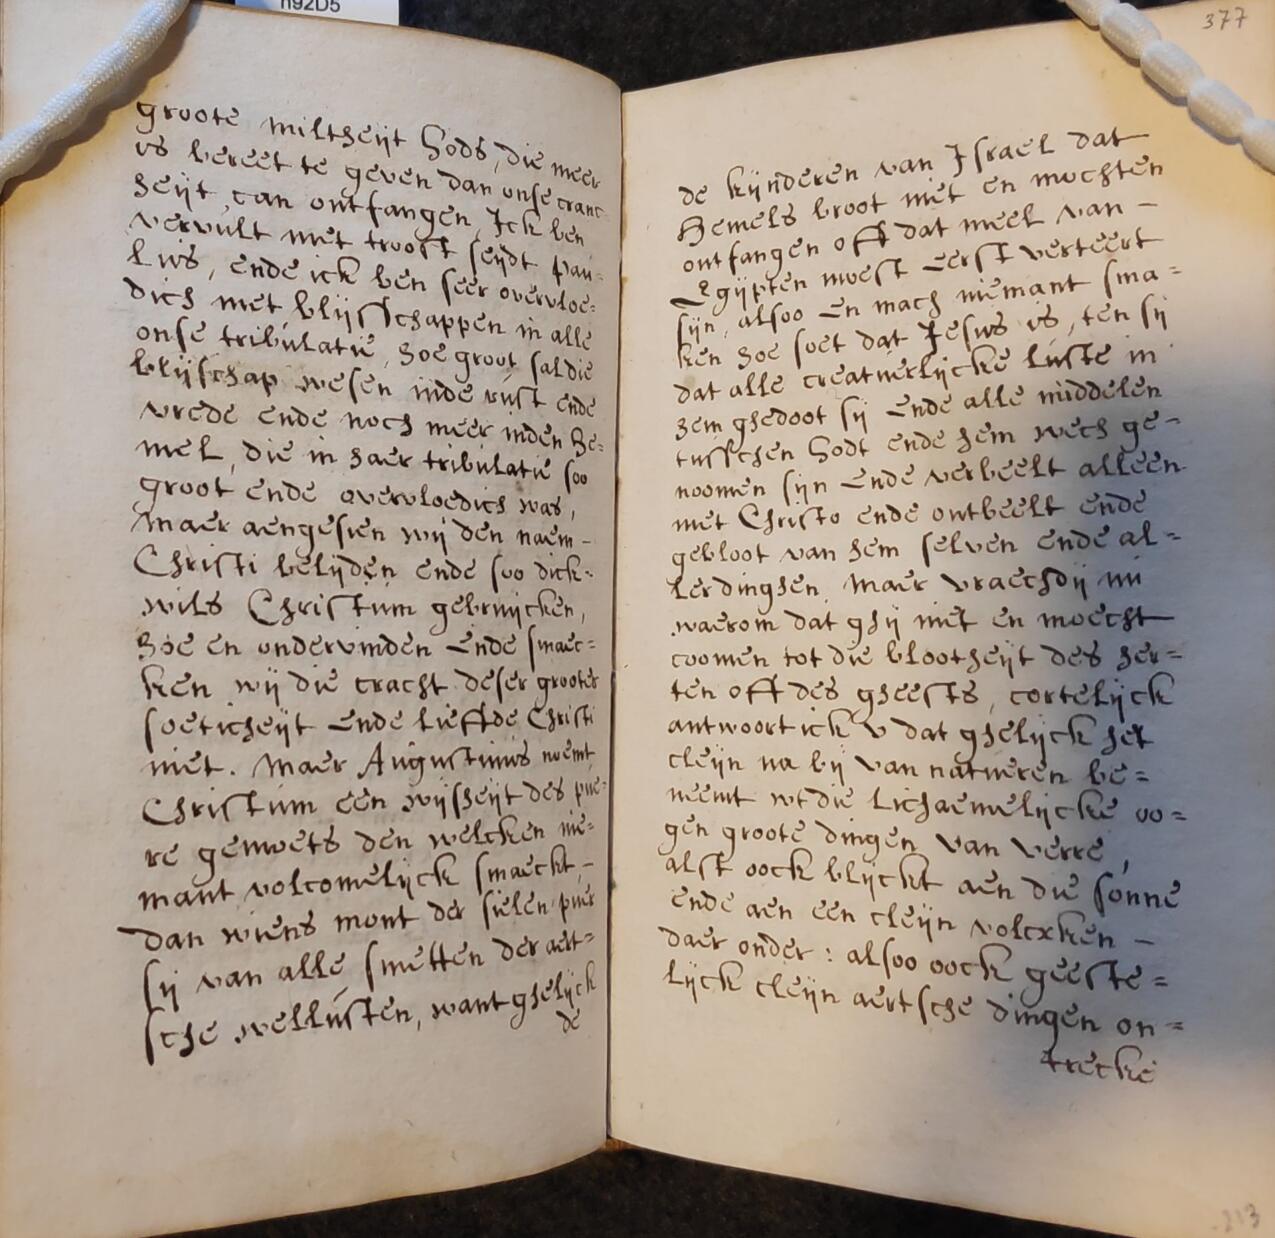 n92D5
groote miltheijt Godts, die meer
is bereet te geven dan onse cranc
heijt can ontfangen, Ick ben
vervult met troost seijdt pau-
lus, ende ick ben seer overvloe-
dich met blijsschappen in alle
onse tribulatie, hoe groot sal die
blijschap wesen inde rust ende
vrede ende noch meer inden he-
mel, die in haer tribulatie soo
groot ende overvloedich was,
Maer aengesien wij den naem -
Christi belijden ende soo dick-
wils Christum gebruijcken,
hoe en ondervinden ende smaec-
ken wij die cracht deser grooter
soeticheijt ende liefde Christi
niet. Maer Augustinus noemt
Christum een wijsheijt des pue-
re gemoets den welcken nie-
mant volcomelijck smaeckt, -
dan wiens mont der sielen puer
sij van alle smetten der aert-
sche wellusten, want ghelijck
de
377
de kijnderen van Israel dat
Hemels broot niet en mochten
ontfangen off dat meel van -
Egijpten moest eerst verteert
sijn, alsoo en mach niemant sma-
ken hoe soet dat Jesus is, ten sij
dat alle creatuerlijcke luste in
hem ghedoot sij ende alle middelen
tusschen Godt ende hem wech ge-
noomen sijn ende verbeelt alleen
met Christo ende ontbeelt ende
gebloot van hem selven ende al-
lerdinghen. Maer vraechdij mi
waerom dat ghij niet en moecht
coomen tot die blootheijt des her-
ten off des gheests, cortelijck
antwoort ick u dat ghelijck het
cleijn na bij van natueren be-
neemt wt die lichaemelijcke oo-
gen groote dingen van verre,
alst oock blijckt aen die sonne
ende aen een cleijn volcxken -
daer onder: alsoo oock geeste-
lijck cleijn aertsche dingen on-
trecke
213